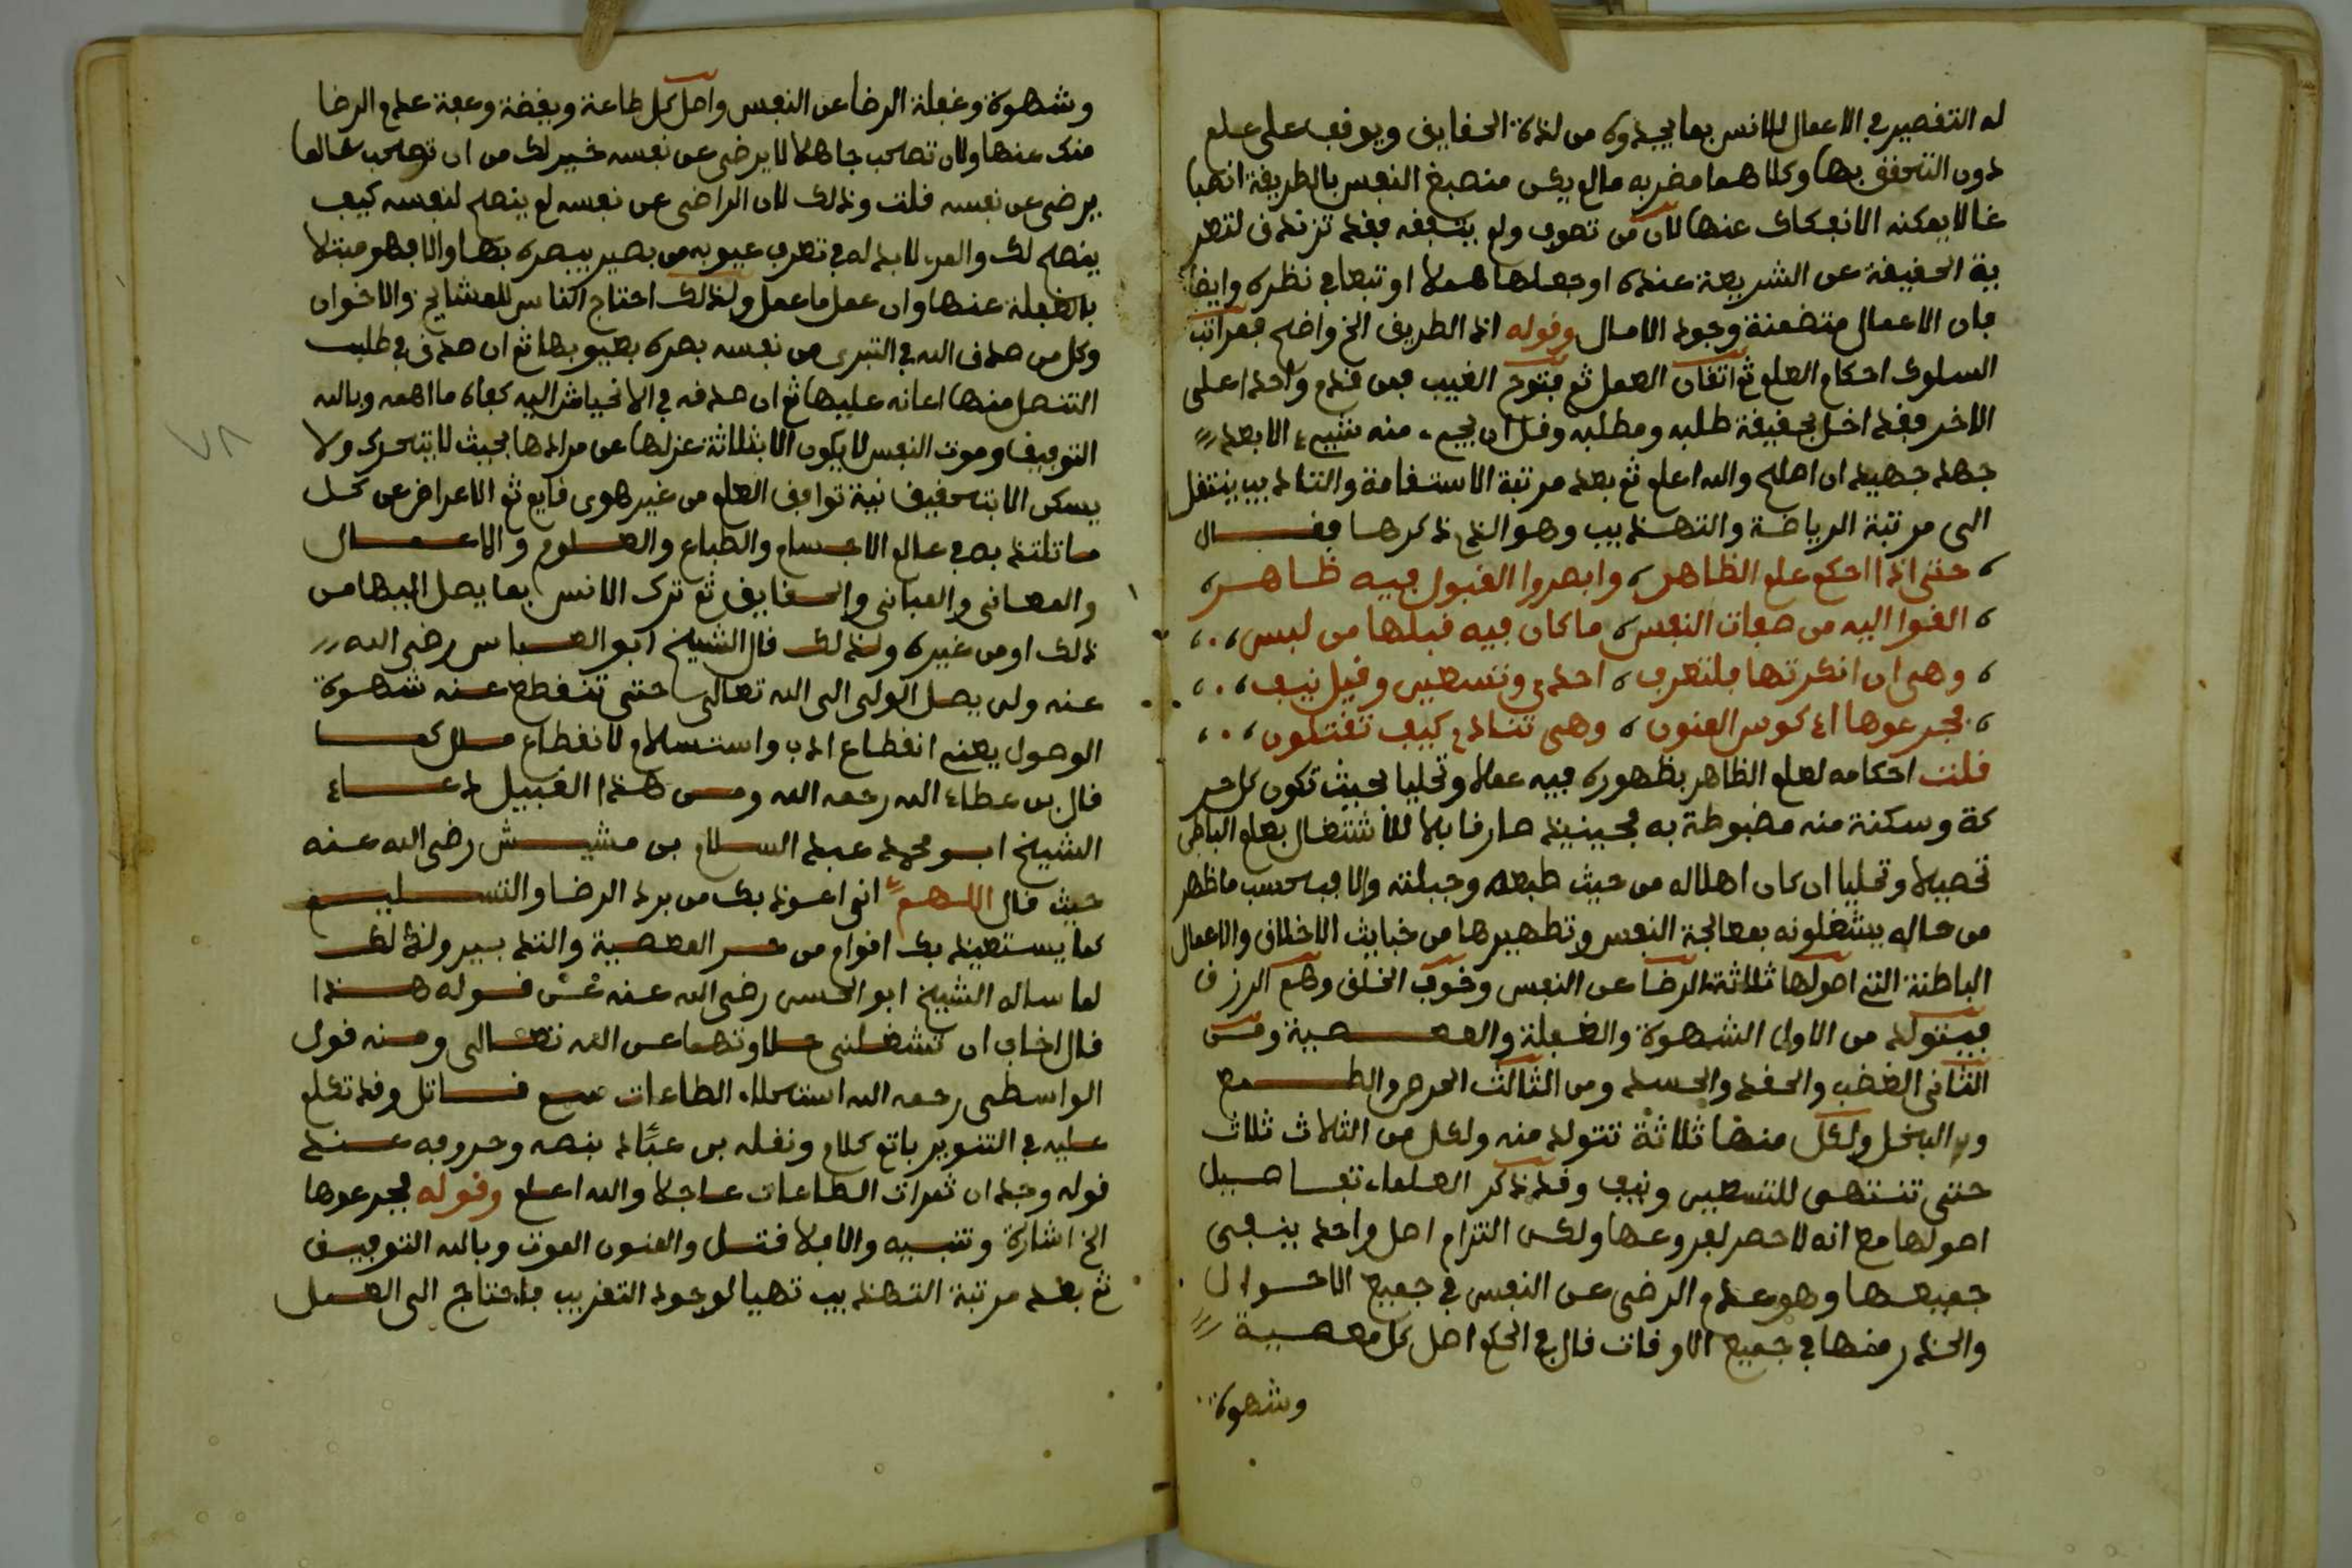 له التقصير في الاعمال للانس بما يجدوه من لذة الحقايق ويوقف على علم
دون التحقق بها وكلاهما مضر به ما لم يكن منصبغ النفس بالطريقة انصبا
غا لا يمكنه الانفكاك عنها لان من تصوف ولم يتفقه فقد تزندق لتعر
ية الحقيقة عن الشريعة عنده او جعلها هملا او تبعا في نظره وايضا
فان الاعمال متضمنة وجود الامال وقوله اذ الطريق الخ واضح فمراتب
السلوك احكام العلم ثم اتقان العمل ثم فتوح الغيب فمن قدم واحدا على
الاخر فقد اخل بحقيقة طلبه ومطلبه وقل ان يجيء منه شيء الا بعد
جهد جهيد ان افلح والله اعلم ثم بعد مرتبة الاستقامة والتاديب ينتقل
الى مرتبة الرياضة والتهذيب وهو الذي ذكرها فقال
حتى اذا احكم علم الظاهر وابصروا القبول فيه ظاهر
القوا اليه من صفات النفس ما كان فيه قبلها من لبس
وهي ان انكرتها فلتعرف احدى وتسعين وقيل نيف
فجرعوها اذ كوس المنون وهي تنادي كيف تقتلون
قلت احكامه لعلم الظاهر بظهوره فيه عملا وتحليا بحيث تكون كل حر
كة وسكنة منه مضبوطة به فحينيذ صار قابلا للاشتغال بعلم الباطن
تحصيلا وتحليا ان كان اهلا له من حيث طبعه وجبلته والا فبحسب ما ظهر
من حاله يشغلونه بمعالجة النفس وتطهيرها من خبايث الاخلاق والاعمال
الباطنة التي اصولها ثلاثة الرضا عن النفس وخوف الخلق وهم الرزق
فيتولد من الاول الشهوة والغفلة والمعصية ومن
الثاني الغضب والحقد والحسد ومن الثالث الحرص والطمع
والبخل ولكل منها ثلاثة تتولد منه ولكل من الثلاث ثلاث
حتى تنتهى للتسعين ونيف وقد ذكر العلماء تفاصيل
اصولها مع انه لا حصر لفروعها ولكن التزام اصل واحد ينفي
جميعها وهو عدم الرضى عن النفس في جميع الاحوال
والحذر منها في جميع الاوقات قال في الحكم اصل كل معصية
وشهوة
وشهوة وغفلة الرضا عن النفس واصل كل طاعة ويقضة وعفة عدم الرضا
منك عنها ولان تصحب جاهلا لا يرضى عن نفسه خير لك من ان تصحب عالما
يرضى عن نفسه قلت وذلك لان الراضى عن نفسه لم ينصح لنفسه كيف
ينصح لك والمرء لا بد له في تعرف عيوبه من بصير يبصره بها والا فهو مبتلا
بالغفلة عنها وان عمل ما عمل ولذلك احتاج الناس للمشايخ والاخوان
وكل من صدق الله في التبرى من نفسه بصره بعيوبها ثم ان صدق في طلب
التنصل منها اعانه عليها ثم ان صدقه في الانحياش اليه كفاه ما اهمه وبالله
التوفيق وموت النفس لا يكون الا بثلاثة عزلها عن مرادها بحيث لا يتحرك ولا
يسكن الا بتحقيق نية توافق العلم من غير هوى قايم ثم الاعراض عن كل
ما تلتذ به في عالم الاجسام والطباع والعلوم والاعمال
والمعاني والمباني والحقايق ثم ترك الانس بما يصل اليها من
ذلك او من غيره ولذلك قال الشيخ ابو العباس رضى الله
عنه ولن يصل الولي الى الله تعالى حتى تنقطع عنه شهوة
الوصول يعني انقطاع ادب واستسلام لا انقطاع ملل كما
قال بن عطاء الله رحمه الله ومن هذا القبيل دعاء
الشيخ ابو محمد عبد السلام بن مشيش رضى الله عنه
حيث قال اللهم اني اعوذ بك من برد الرضا والتسليم
كما يستعيذ بك اقوام من حر المعصية والتدبير ولذلك
لما ساله الشيخ ابو الحسن رضى الله عنه عن قوله هذا
قال اخاف ان تشغلني حلاوتهما عن الله تعالى ومنه قول
الواسطى رحمه الله استحلاء الطاعات سم قاتل وقد تكلم
عليه في التنوير باتم كلام ونقله بن عباد بنصه وحروفه عند
قوله وجد ان ثمرات الطاعات عاجلا والله اعلم وقوله فجرعوها
الخ اشارة وتنبيه والا فلا قتل والمنون الموت وبالله التوفيق
ثم بعد مرتبة التهذيب تهيا لوجود التقريب فاحتاج الى العمل
٧٨